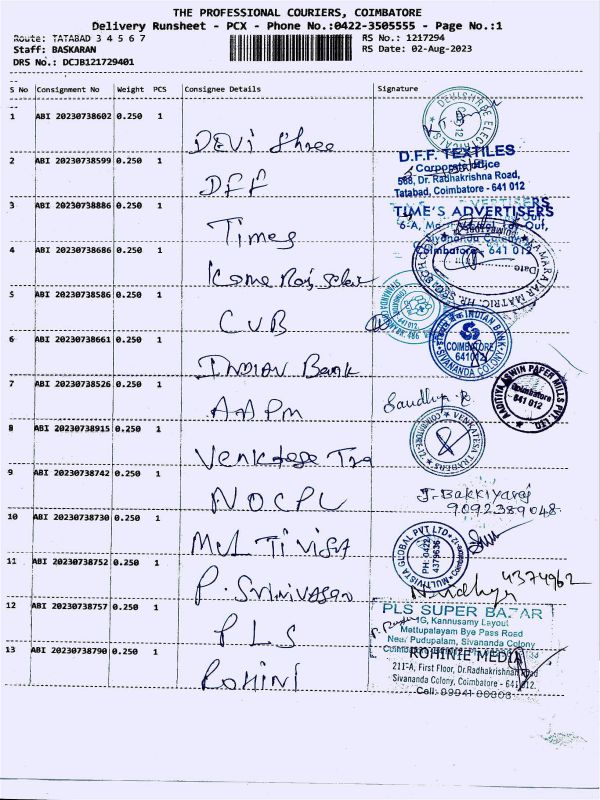 THE PROFESSIONAL COURIERS, COIMBATORE
Delivery Runsheet - PCX - Phone No.:0422-3505555 - Page No.:1
Route: TATABAD 3 4 5 6 7 RS No.: 1217294
Staff: BASKARAN RS Date: 02-Aug-2023
DRS No.: DCJB121729401
S No Consignment No Weight PCS Consignee Details Signature
1 ABI 20230738602 0.250 1 DEVI Shree
DEVISHREE ELECTRICALS
2 ABI 20230738599 0.250 1 DFF
D.F.F. TEXTILES
Corporate Office
568, Dr. Radhakrishna Road,
Tatabad, Coimbatore - 641 012
3 ABI 20230738886 0.250 1 Times
TIME'S ADVERTISERS
4 ABI 20230738686 0.250 1
Coimbatore - 641 012
Date
5 ABI 20230738586 0.250 1 CUB
6 ABI 20230738661 0.250 1 INDIAN Bank
INDIAN BANK
COIMBATORE
641012
SIVANANDA COLONY
7 ABI 20230738526 0.250 1
AADITIYA ASWIN PAPER MILLS PVT. LTD.
Coimbatore
641 012
8 ABI 20230738915 0.250 1
VENKATESA TRADERS
COIMBATORE-12
9 ABI 20230738742 0.250 1 NOCPL
J. Bakkiyaraj
9092389048
10 ABI 20230738730 0.250 1 MULTI VISTA
MULTIVISTA GLOBAL PVT LTD
PH: 0422
4379636
11 ABI 20230738752 0.250 1 P. Srinivasan
4374962
12 ABI 20230738757 0.250 1 PLS
PLS SUPER BAZAAR
1G, Kannusamy Layout
Mettupalayam Bye Pass Road
Near Pudupalam, Sivananda Colony
13 ABI 20230738790 0.250 1 ROHINI
ROHINIE MEDIA
211-A, First Floor, Dr.Radhakrishnan Road
Sivananda Colony, Coimbatore - 641 012